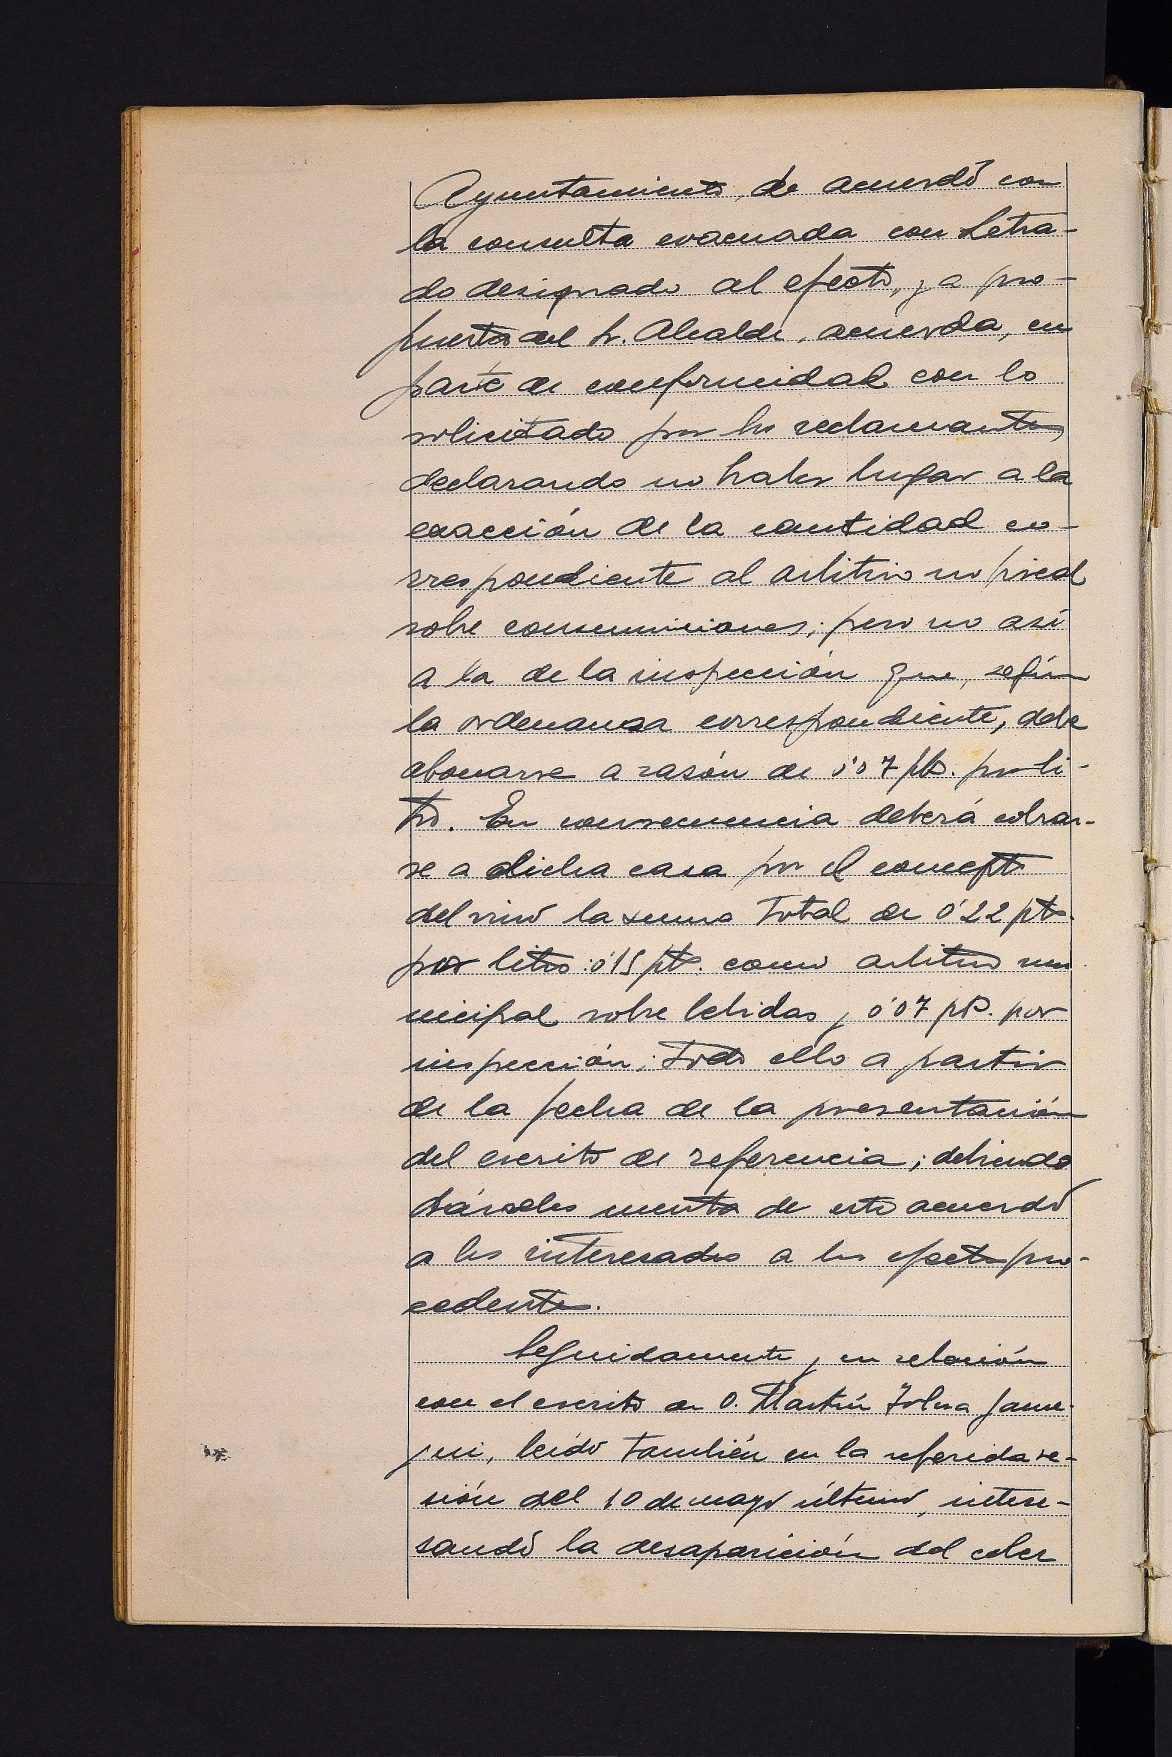 Ayuntamiento, de acuerdo con
la consulta evacuada con Letra-
do designado al efecto, y a pro-
puesta del Sr. Alcalde, acuerda, en
parte de conformidad con lo
solicitado por los reclamantes,
declarando no haber lugar a la
exacción de la cantidad co-
rrespondiente al arbitrio no fiscal
sobre consumiciones; pero no así
a la de la inspección que, según
la ordenanza correspondiente, debe
abonarse a razón de 0'07 pts. por li-
tro. En consecuencia deberá cobrar-
se a dicha casa por el concepto
del vino la suma total de 0'22 pts.
por litro: 0'15 pts. como arbitrio mu
nicipal sobre bebidas y 0'07 pts. por
inspección; todo ello a partir
de la fecha de la presentación
del escrito de referencia; debiendo
dárseles cuenta de este acuerdo
a los interesados a los efectos pro-
cedentes.
Seguidamente y en relación
con el escrito de D. Martín
leído también en la referida se-
sión del 10 de mayo último, intere-
sando la desaparición del